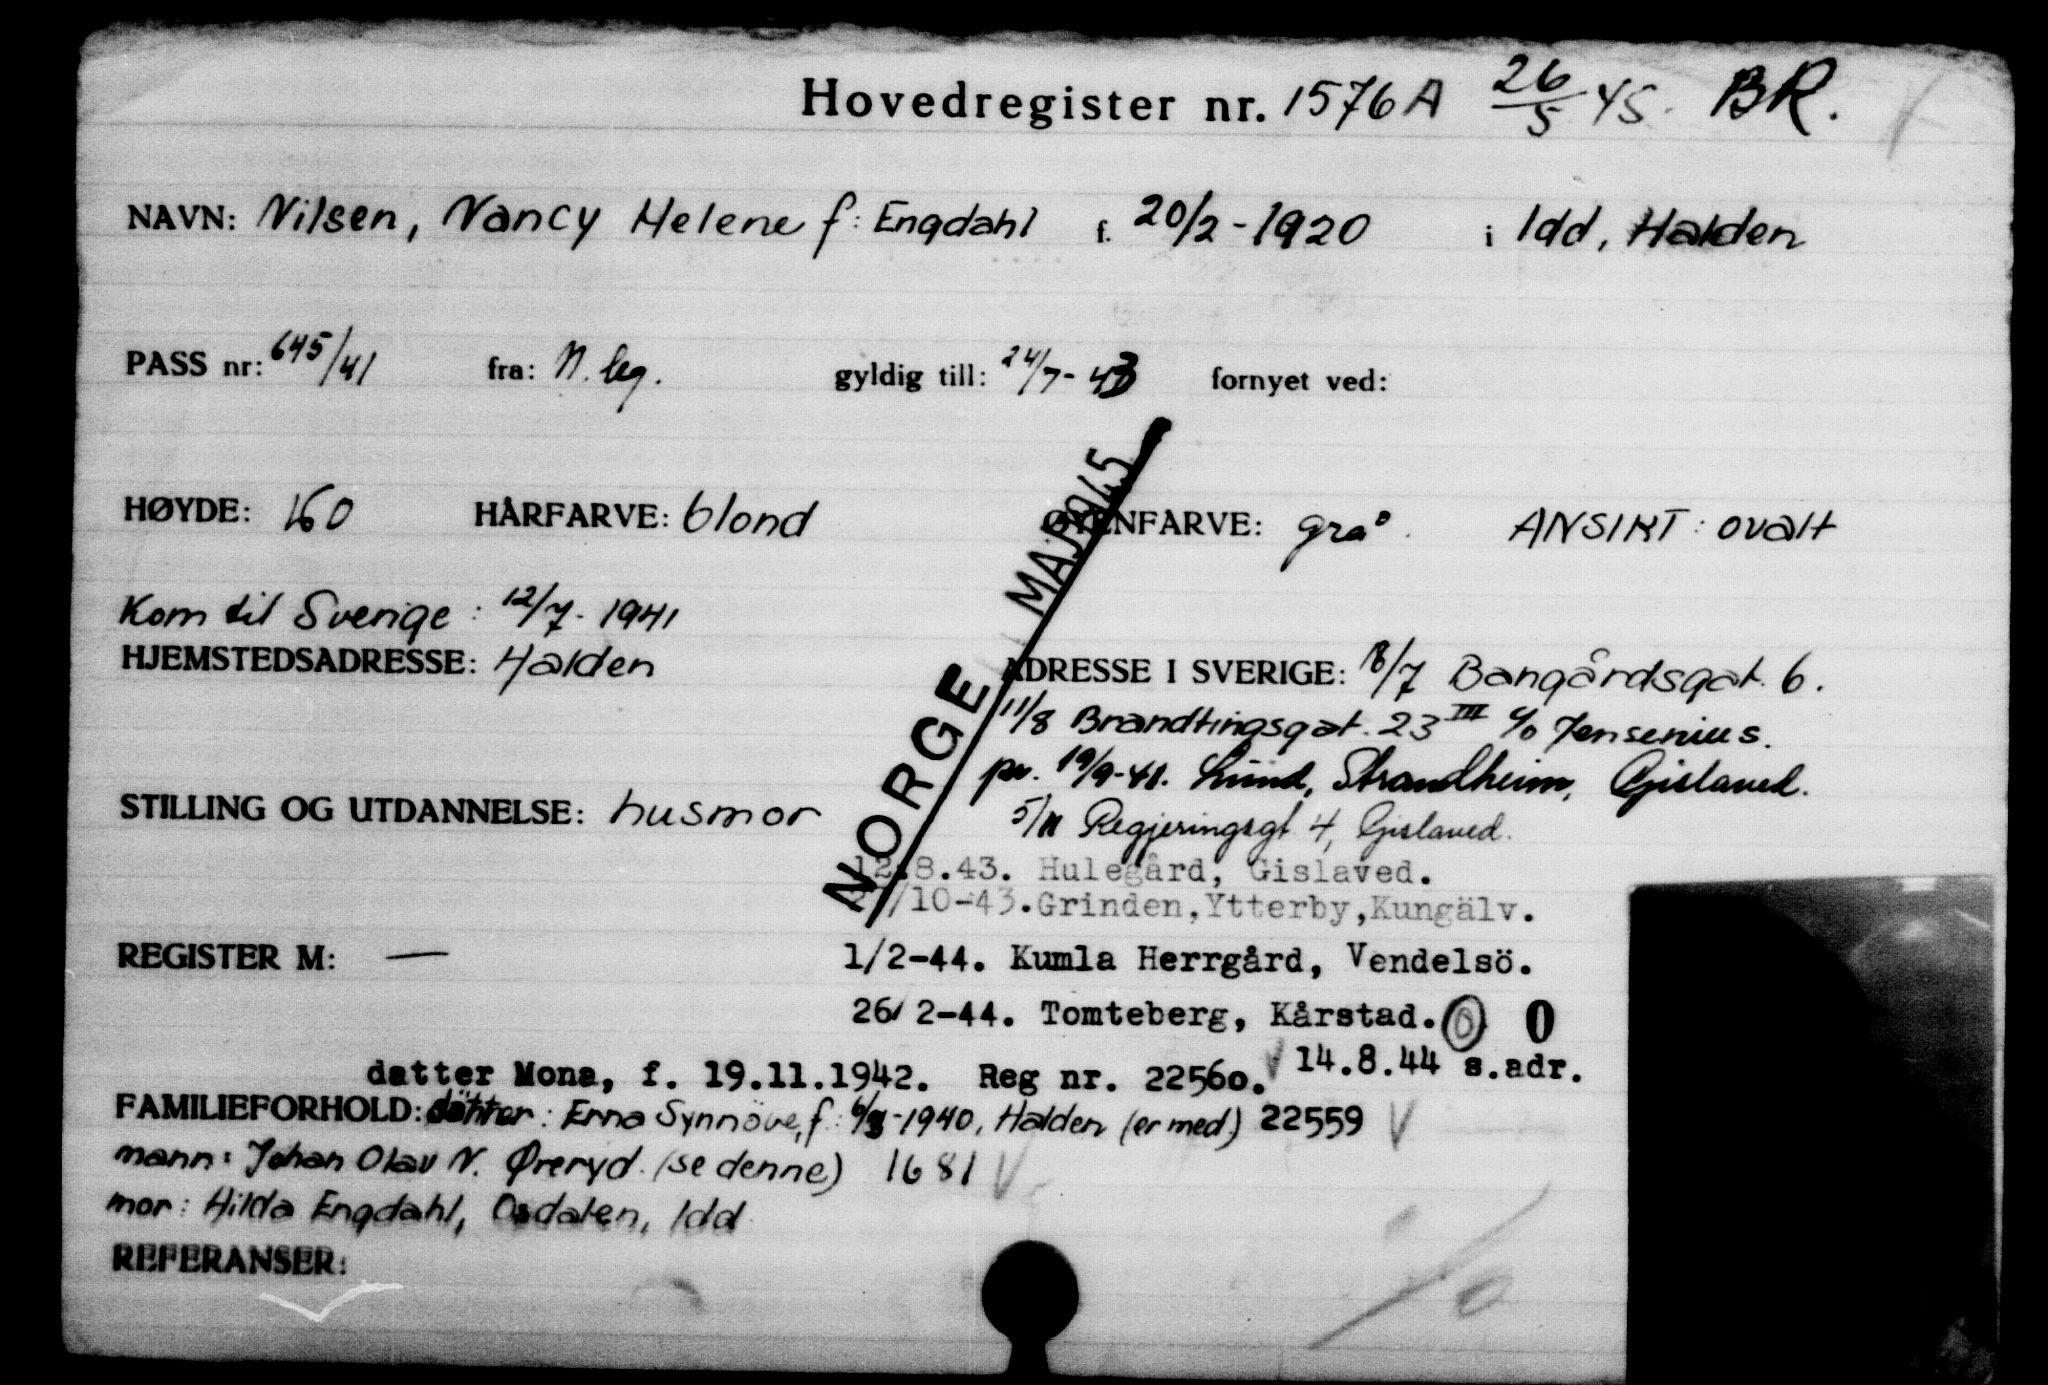 Hovedregister nr. 1576 A 26/5 45. BR.
NAVN: Nilsen, Nancy Helene f: Engdahl f. 20/2 - 1920 i Idd, Halden
PASS nr: 645/41 fra: N. leg. gyldig till: 24/7 - 43 fornyet ved:
HØYDE: 160 HÅRFARVE: blond ØYENFARVE: grå. ANSIKT: ovalt
Kom til Sverige: 12/7 - 1941
HJEMSTEDSADRESSE: Halden ADRESSE I SVERIGE: 18/7 Bangårdsgat. 6.
11/8 Brandtingsgat. 23 III c/o Jensenius.
pr. 19/9-41. Lund, Strandheim, Gislaved.
STILLING OG UTDANNELSE: husmor
5/11 Regjeringsgt 4, Gislaved.
12.8.43. Hulegård, Gislaved.
/10-43. Grinden, Ytterby, Kungälv.
NORGE MAJ 1945
REGISTER M: — 1/2-44. Kumla Herrgård, Vendelsö.
26/2-44. Tomteberg, Kårstad. O O
datter Mona, f. 19.11.1942. Reg nr. 22560. V 14.8.44 s.adr.
FAMILIEFORHOLD: datter: Erna Synnöve, f: 6/8-1940, Halden (er med) 22559 V
mann: Johan Olav N. Øreryd. (se denne) 1681 V
mor: Hilda Engdahl, Osdalen, Idd
REFERANSER: